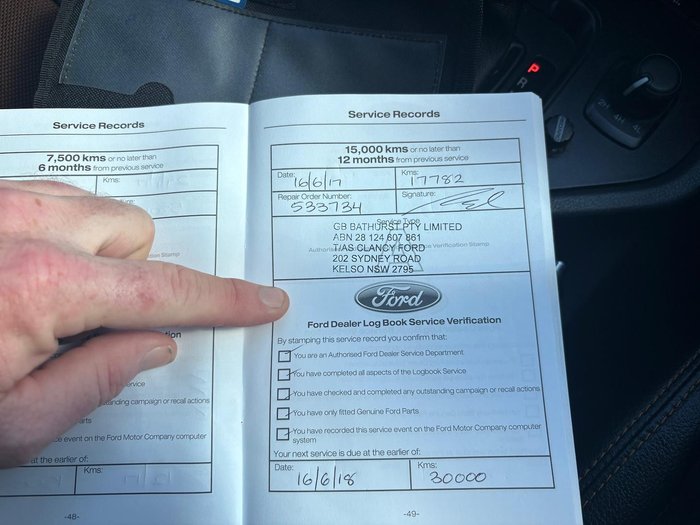 P
R
2H 4H 4L
Service Records
7,500 kms or no later than
6 months from previous service
Kms:
ation Stamp
tion
ervice
tanding campaign or recall actions
arts
ce event on the Ford Motor Company computer
at the earlier of:
Kms:
-48-
Service Records
15,000 kms or no later than
12 months from previous service
Date: 16/6/17 Kms: 17782
Repair Order Number: 533734 Signature:
Service Type
GB BATHURST PTY LIMITED
ABN 28 124 607 861
T/AS CLANCY FORD
Authoris ce Verification Stamp
202 SYDNEY ROAD
KELSO NSW 2795
Ford
Ford Dealer Log Book Service Verification
By stamping this service record you confirm that:
You are an Authorised Ford Dealer Service Department
You have completed all aspects of the Logbook Service
You have checked and completed any outstanding campaign or recall actions
You have only fitted Genuine Ford Parts
You have recorded this service event on the Ford Motor Company computer
system
Your next service is due at the earlier of:
Date: 16/6/18 Kms: 30000
-49-